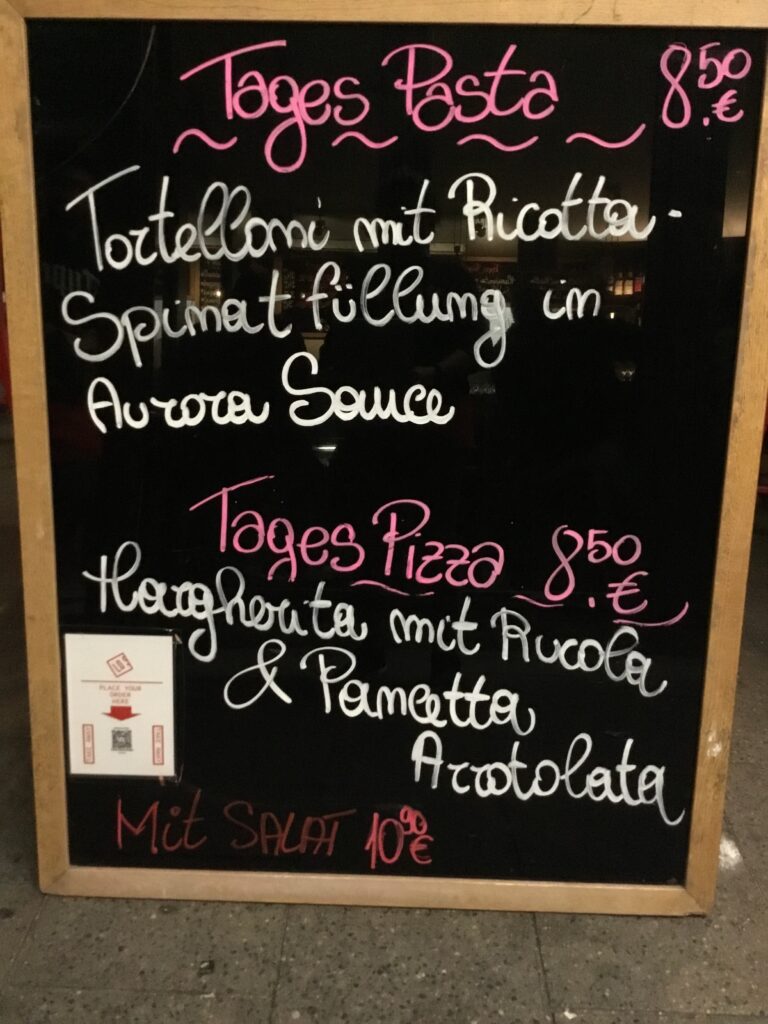 Tages Pasta 8.50 €
Tortelloni mit Ricotta-
Spinat füllung in
Aurora Sauce
Tages Pizza 8.50 €
Margherita mit Rucola
& Pancetta
Arrotolata
PLACE YOUR
ORDER
HERE
Mit SALAT 10 90 €